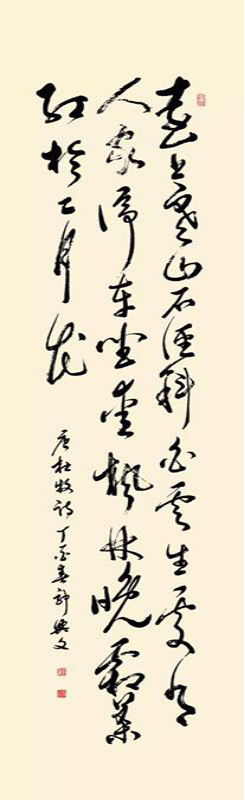 遠上寒山石徑斜白雲生處有
人家停車坐愛楓林晚霜葉
紅於二月花
唐杜牧詩丁酉春郭興文